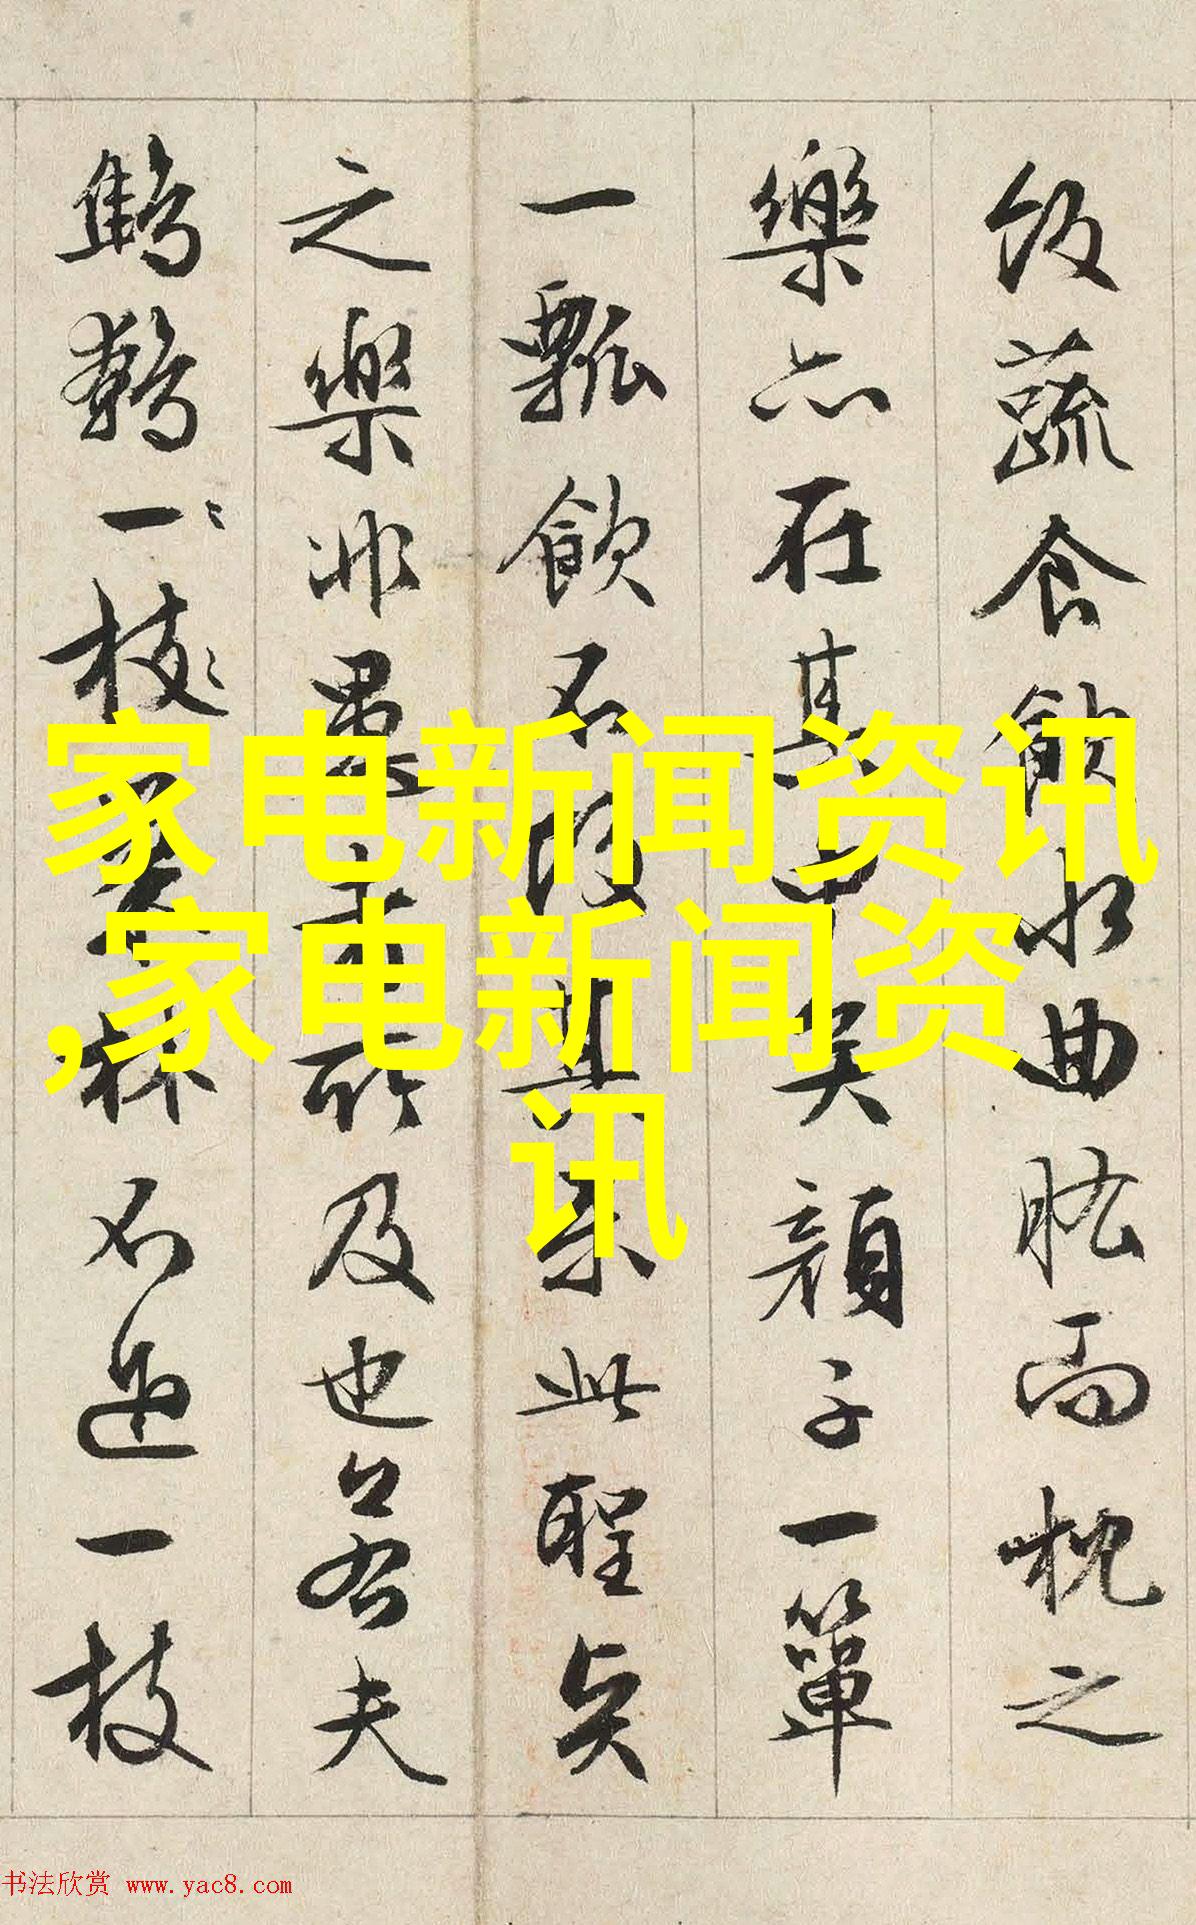 飯蔬食飲水曲肱而枕之
樂亦在其中矣顏子一簞
一瓢飲不改其樂此聖賢
之樂非愚所及也若夫
鷦鷯一枝巢林不過一枝
家电新闻资讯
,家电新闻资
讯
书法欣赏 www.yac8.com